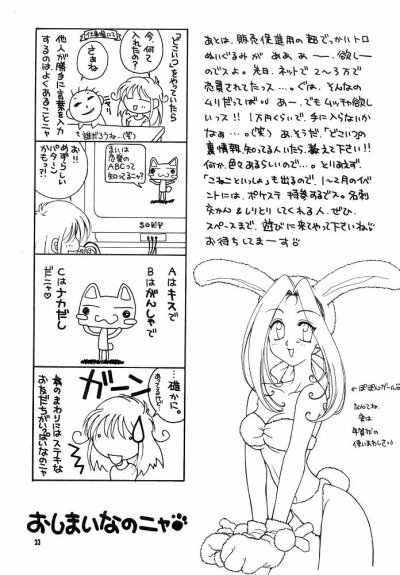 あとは、販売促進用の超でっかいトロ
ぬいぐるみが ああ あ ー. 欲しー
のでスよ。先日、ネットで 2〜3万で
売買されてたっス…。ぐは、そんなの
ムリだってば!! あー…でもムッチャ欲し
いっス!! 1万円くらいで、手に入らないか
なぁ…。(笑) あ、そうだ。「どこいつ」の
裏情報、知ってる人いたら、教えて下さい!!
何か、色々あるらしいので…。とりあえず、
「こねこといっしょ」も出るので、1〜2月のイベ
ントには、ポケステ 持参するでス。名刺
交かん&しりとり してくれる人、ぜひ、
スペースまで、遊びに来てやって下さいね
お待ちしてまーす
仕事場にて
「どこいつ」をやっていたら
今、何て
入れたの?
さぁね
誰だろうね…(笑)
他人が勝手に言葉を入力
するのは、よくあることニャ
まいは
恋愛の
ABCって
知ってるニャ?
SONY
おっ
めずらしい
パターン
かも?!
Aはキスで
Bはがんしゃで
Cはナカだし
だニャ♡
ガーン
…確かに。
あってるけど…
春のまわりにはステキな
お友だちがいっぱいなのニャ
おしまいなのニャ
←ぽぽんガールな
なんてね。
実は
年賀状の
使いまわしさい
23